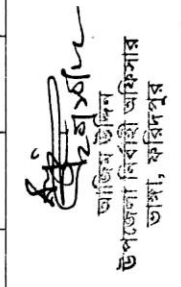 আজিম উদ্দিন
উপজেলা নির্বাহী অফিসার
ভাঙ্গা, ফরিদপুর